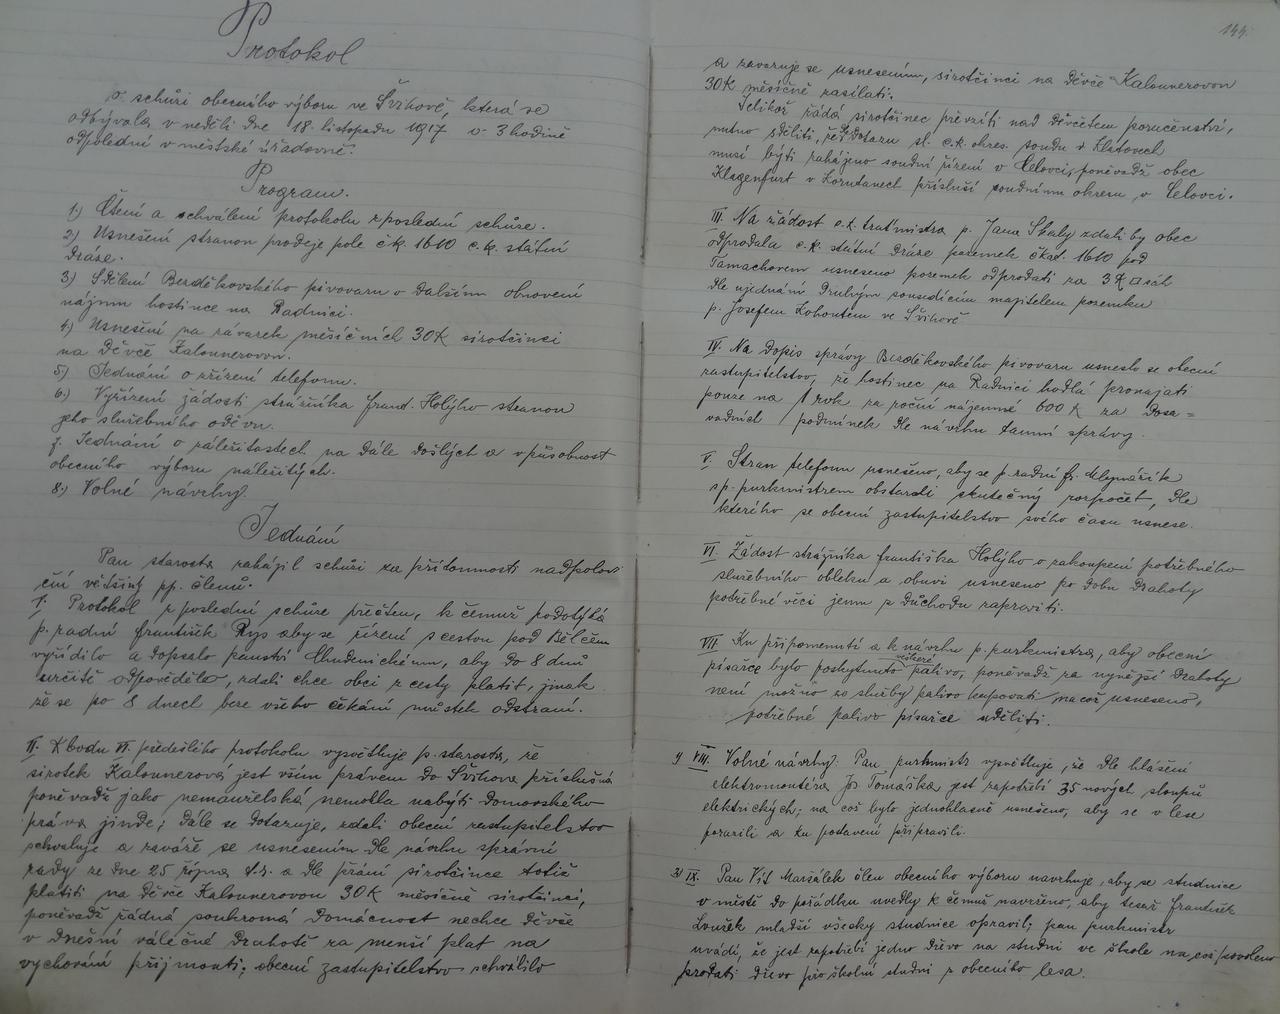 Protokol
o schůzi obecního výboru ve Švihově, která se
odbývala v neděli dne 18. listopadu 1917 o 3 hodině
odpolední v městské úřadovně.
Program.
1) Čtení a schválení protokolu z poslední schůze.
2) Usnešení stranou prodeje pole čk. 1610 c.k. státní
dráze.
3) Sdělení Bezděkovského pivovaru o dalším obnovení
nájmu hostince na Radnici.
4) Usnešení na závazek měsíčních 30K sirotčinci
na děvče Kalounerovou.
5) Jednání o zřízení telefonu.
6) Vyřízení žádosti strážníka Frant. Holýho stranou
jeho služebního oděvu.
7. Jednání o záležitostech na dále došlých a v působnost
obecního výboru náležitých.
8.) Volné návrhy.
Jednání
Pan starosta zahájil schůzi za přítomnosti nadpolov
ční většiny pp. členů.
1. Protokol z poslední schůze přečten, k čemuž podotýká
p. radní František Rys aby se řízení s cestou pod Bělčem
vyřídilo a dopsalo panství Chudenickému, aby do 8 dnů
určitě odpovědělo, zdali chce obci z cesty platit, jinak
že se po 8 dnech beze všeho čekání můstek odstraní.
II. K bodu VI. předešlého protokolu vysvětluje p. starosta, že
sirotek Kalounerová jest vším právem do Švihova příslušná
poněvadž jako nemanželská nemohla nabýti domovského
práva jinde; dále se dotazuje, zdali obecní zastupitelstvo
schvaluje a zaváže se usnesením dle návrhu správní
rady ze dne 25 října t.r. a dle přání sirotčince totiž
platiti na děvče Kalounerovou 30K měsíčně sirotčinci,
poněvadž žádná soukromá domácnost nechce děvče
v dnešní válečné drahotě za menší plat na
vychování přijmouti; obecní zastupitelstvo schválilo
144.
a zavazuje se usnesením, sirotčinci na děvče Kalounerovou
30K měsíčně zasílati.
Jelikož žádá sirotčinec převzíti nad děvčetem poručenství,
nutno sděliti, že dle dotazu sl. c.k. okres. soudu v Klatovech
musí býti zahájeno soudní řízení v Celovci, poněvadž obec
Klagenfurt v Korutanech přísluší soudnímu okresu v Celovci.
III. Na žádost c.k. traťmistra p. Jana Skaly zdali by obec
odprodala c.k. státní dráze pozemek čkat. 1610 pod
Tamachorem usneseno pozemek odprodati za 3K □ sáh
dle ujednání druhým sousedícím majitelem pozemku
p. Josefem Kohoutem ve Švihově
IV. Na dopis správy Bezděkovského pivovaru usneslo se obecní
zastupitelstvo, že hostinec na Radnici hodlá pronajati
pouze na 1 rok za roční nájemné 600 K za dosa=
vadních podmínek dle návrhu tamní správy.
V. Stran telefonu usnešeno, aby se p. radní Fr. Mlynařík
s p. purkmistrem obstarali skutečný rozpočet, dle
kterého se obecní zastupitelstvo svého času usnese.
VI. Žádost strážníka Františka Holýho o zakoupení potřebného
služebního obleku a obuvi usneseno po dobu drahoty
potřebné věci jemu z důchodu zapraviti.
VII. Ku připomenutí a k návrhu p. purkmistra, aby obecní
písařce bylo poskytnuto veškeré palivo, poněvadž za nynější drahoty
není možno ze služby palivo kupovati načož usneseno,
potřebné palivo písařce uděliti.
1) VIII. Volné návrhy. Pan purkmistr vysvětluje, že dle hlášení
elektromontéra Jos Tomáška jest zapotřebí 35 nových sloupů
elektrických; na což bylo jednohlasně usnešeno, aby se v lese
porazili a ku postavení připravili.
2) IX. Pan Vít Maršálek člen obecního výboru navrhuje, aby se studnice
v městě do pořádku uvedly k čemuž navrženo, aby tesař František
Loužek mladší všecky studnice opravil; pan purkmistr
uvádí, že jest zapotřebí jedno dřevo na studni ve škole na což povoleno
prodati dřevo pro školní studni z obecního lesa.